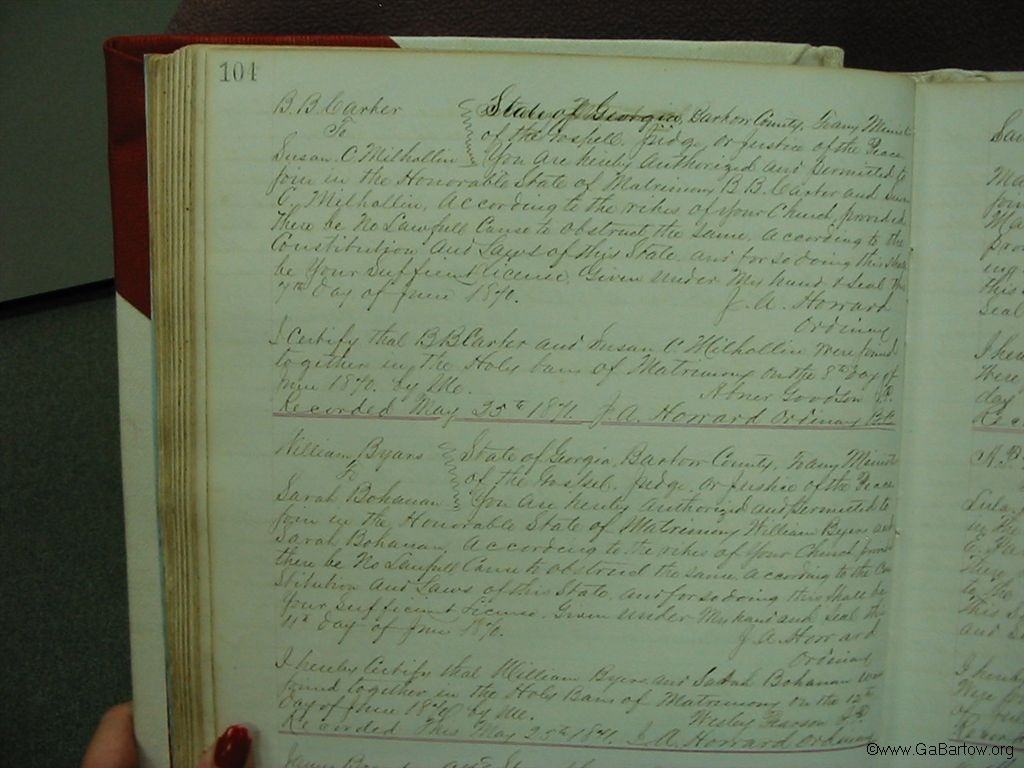 104
B. B. Carter
To
Susan C. Milhollin
State of Georgia, Bartow County, To any Minist
of the Gospell, Judge, or Justice of the Peace
You are hereby authorized and permitted to
join in the Honorable State of Matrimony B. B. Carter and Susan
C. Milhollin, according to the rites of your Church, provided
there be No Lawfull Cause to obstruct the same, according to the
Constitution and Laws of this State and for so doing this shall
be Your Sufficient License, Given under My hand & Seal this
7th day of June 1870.
J. A. Howard
Ordinary
I Certify that B B Carter and Susan C. Milhollin were found
together in the Holy bans of Matrimony on the 8th day of
June 1870. by Me.
Abner J.P.
Recorded May 25th 1871. J. A. Howard Ordinary B.C.
William Byars
To
Sarah Bohanan
State of Georgia, Bartow County, To any Minist
of the Gospel, Judge, or Justice of the Peace
You are hereby Authorized and permitted to
join in the Honorable State of Matrimony William Byers and
Sarah Bohanan, According to the rites of Your Church, provi
there be No Lawfull Cause to obstruct the same, according to the Con
stitution and Laws of this State, and for so doing this shall be
Your Sufficient License, Given under My hand and Seal this
11th day of June 1870.
J. A. Howard
Ordinary
I hereby Certify that William Byers and Sarah Bohanan were
found together in the Holy Bans of Matrimony on the 12th
Day of June 1870 by Me.
Wesley J.P.
Recorded This May 25th 1871. J. A. Howard Ordinary
©www.GaBartow.org